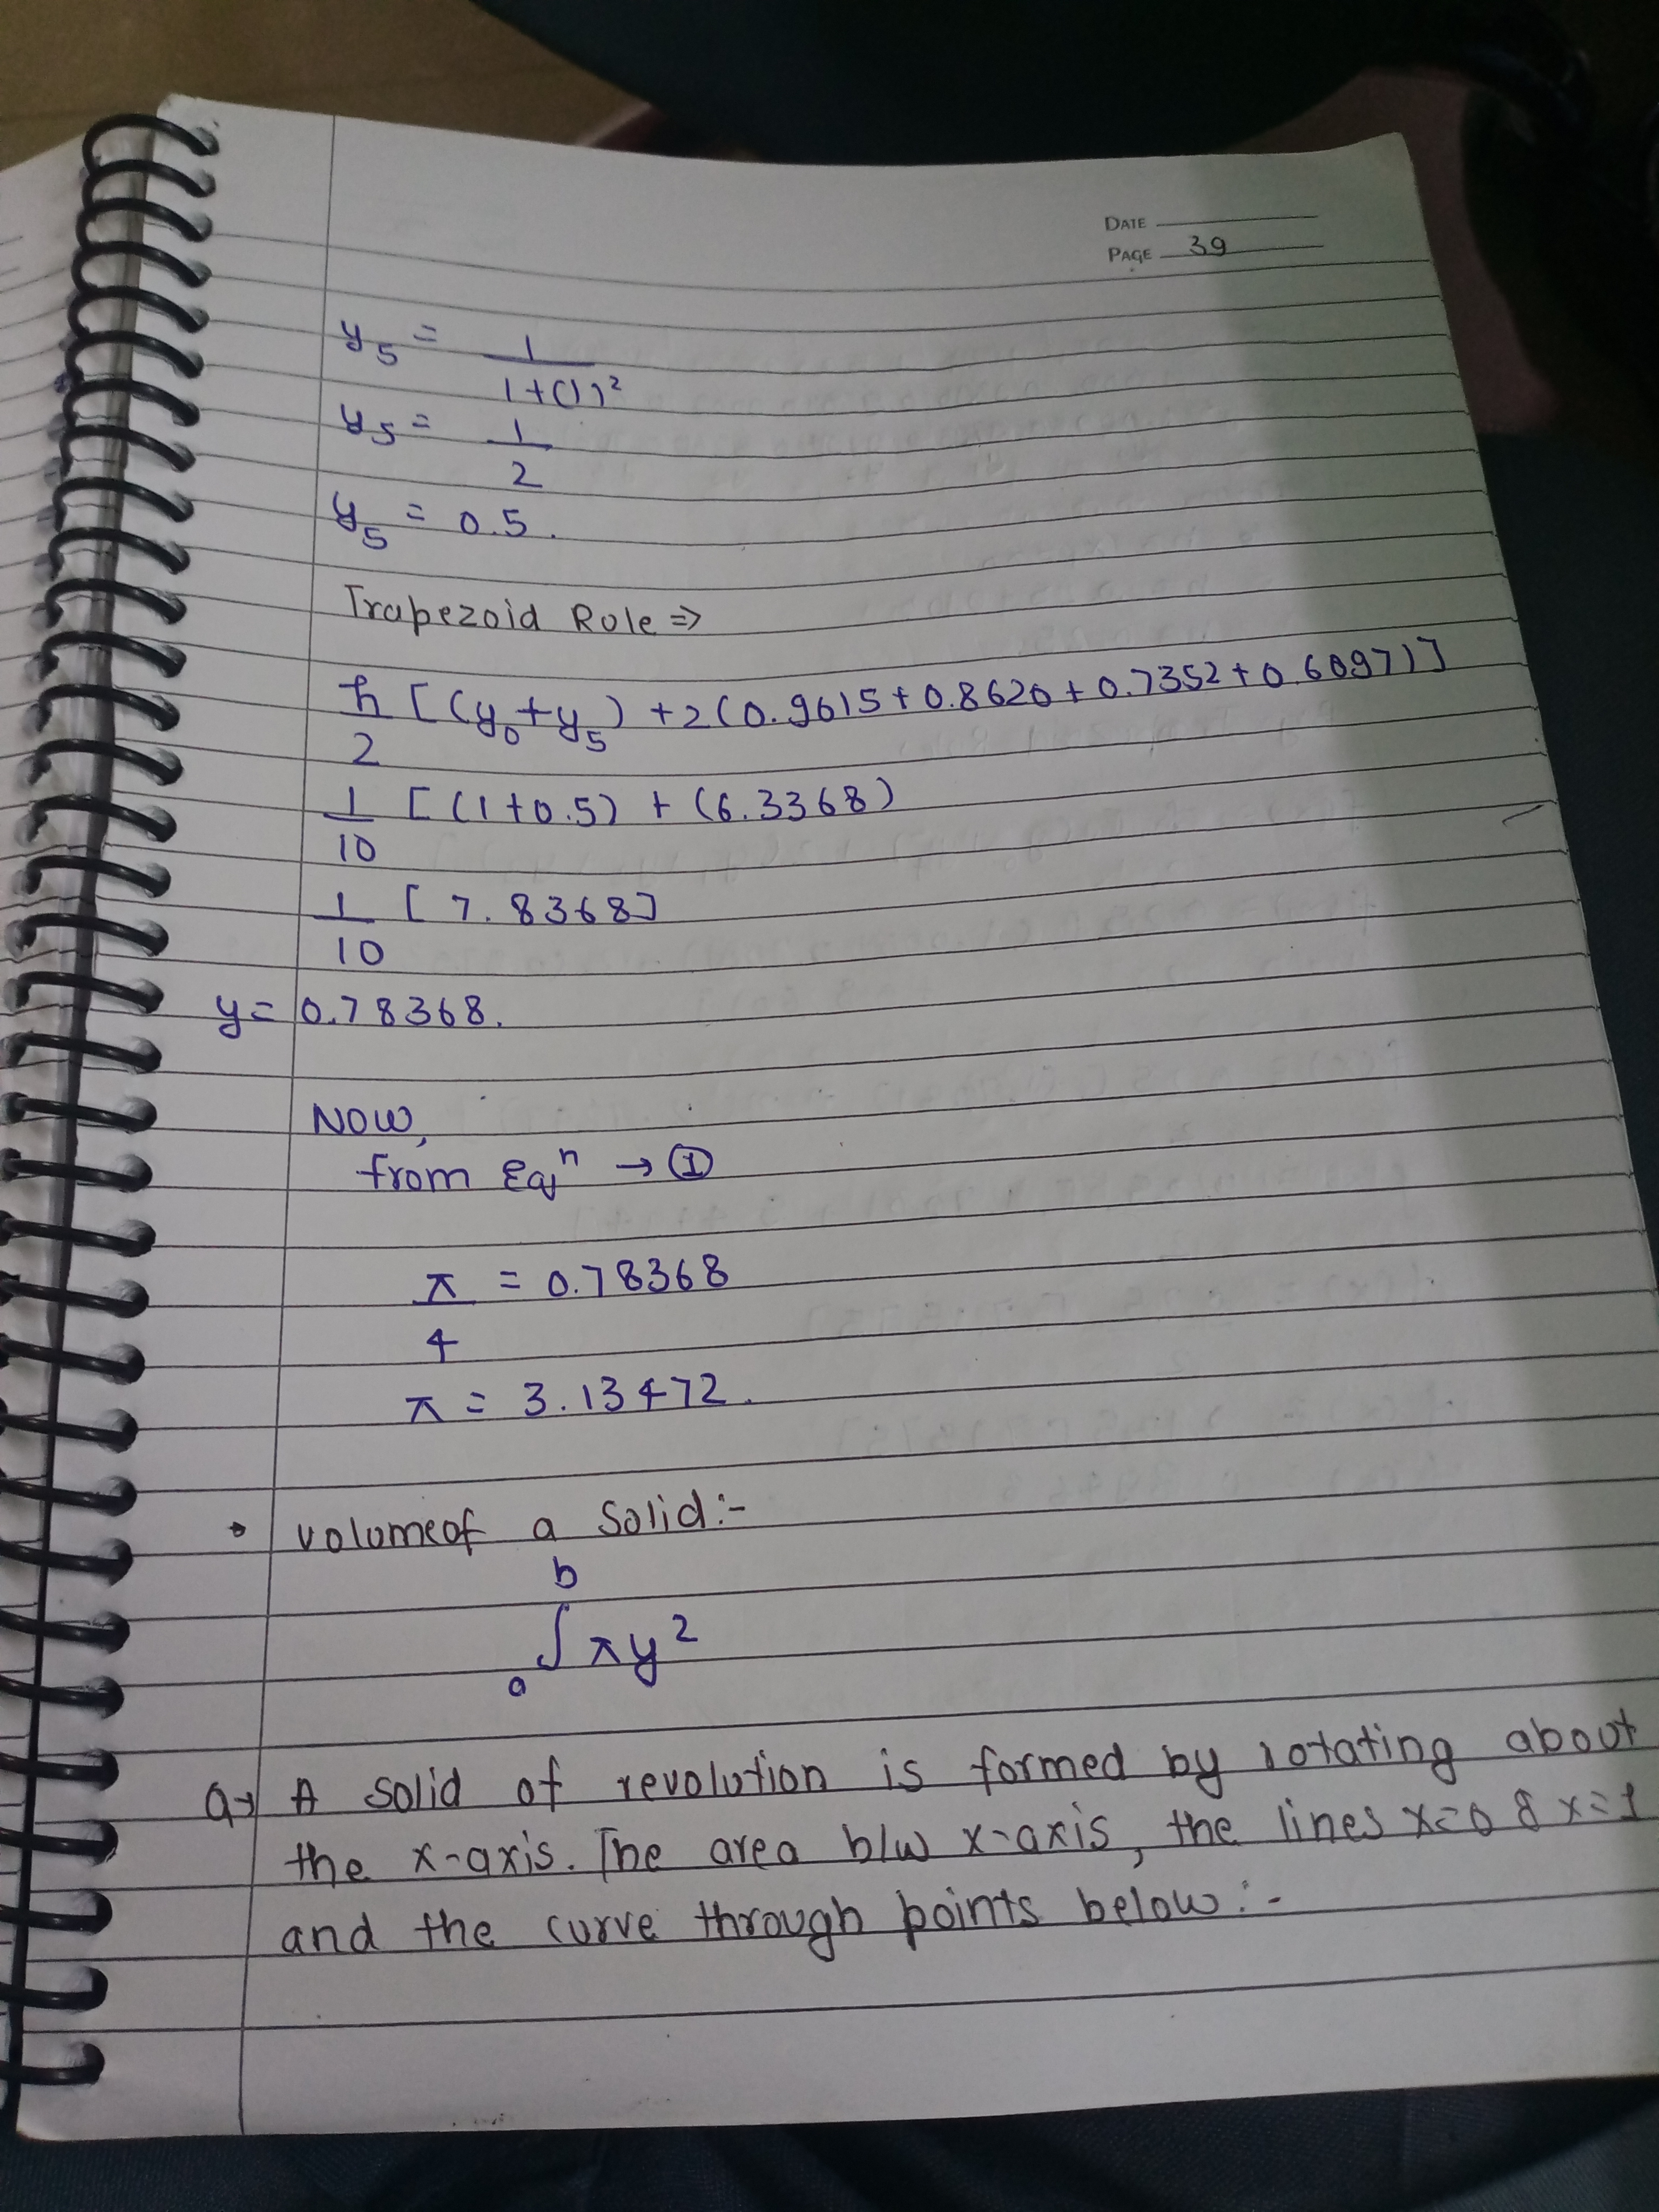 DATE
PAGE 39
y₅ = 1/1+(1)²
y₅ = 1/2
y₅ = 0.5.
Trapezoid Rule ⇒
h/2 [(y₀+y₅) + 2(0.9615+0.8620+0.7352+0.6097)]
1/10 [(1+0.5) + (6.3368)
1/10 [7.8368]
y = 0.78368.
Now,
from Eqⁿ → ①
π/4 = 0.78368
π = 3.13472.
• Volume of a Solid:-
b
∫ πy²
a
Q→ A solid of revolution is formed by rotating about
the x-axis. The area b/w x-axis, the lines x=0 & x=1
and the curve through points below:-